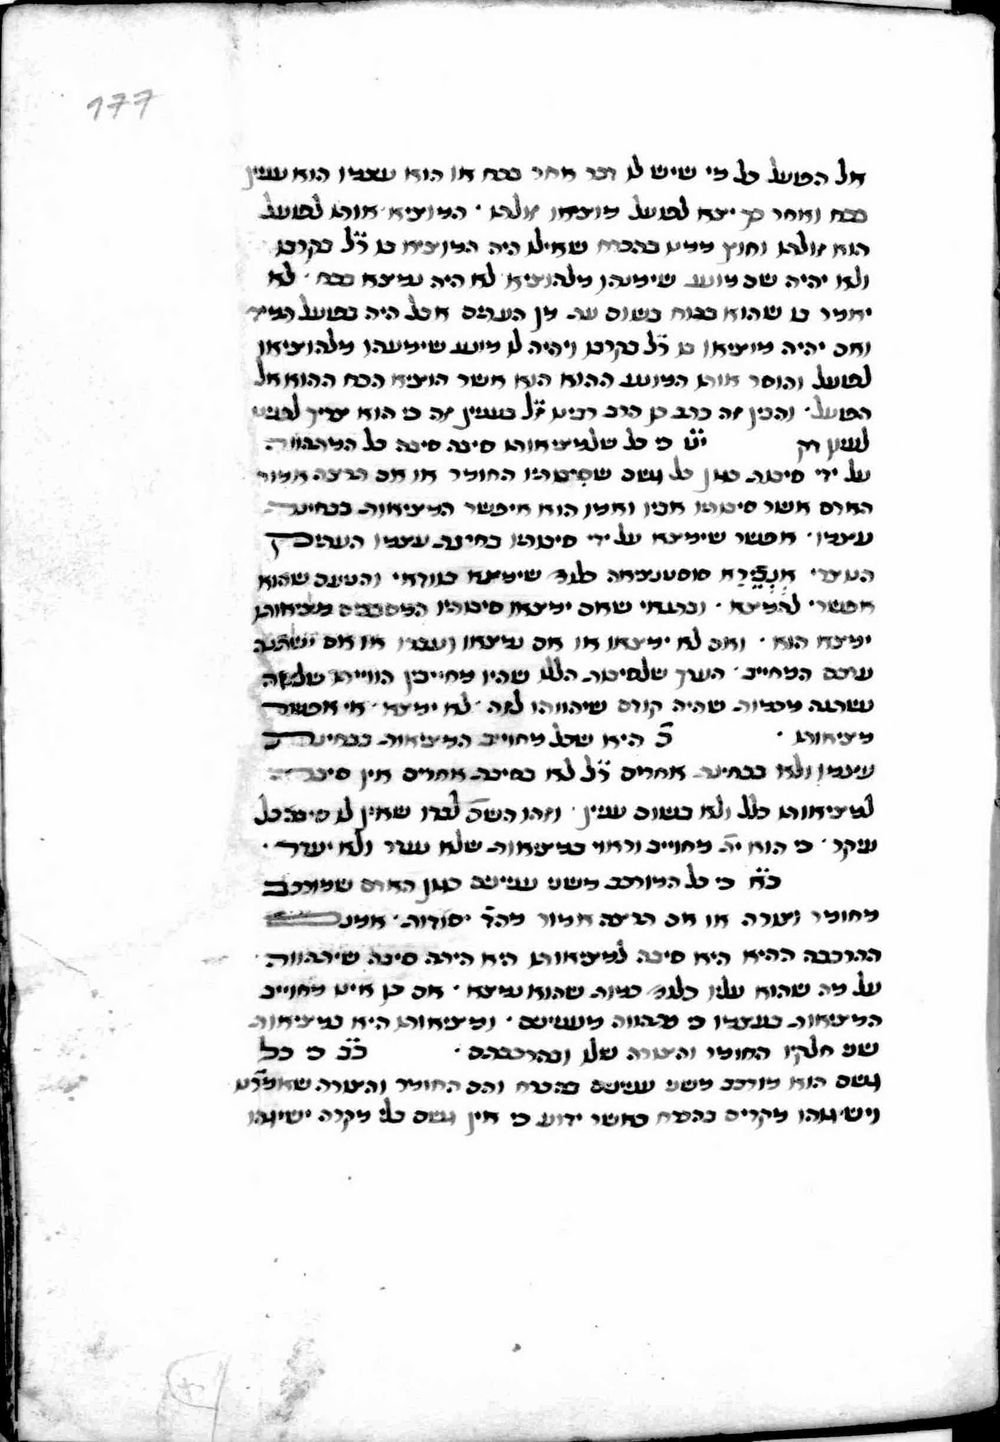 177
אל הפועל כל מי שיש לו דבר אחר בכח או הוא עצמו הוא ענין
בכח ואחר כך יצא לפועל מוציאו זולתו · המוציא אותו לפועל
הוא זולתו וחוץ ממנו בהכרח שאילו היה המוציא בו ר״ל בקרבו
ולא יהיה שם מונע שימנעהו מלהוציא לא היה נמצא בכח · לא
יאמר בו שהוא בכוח בשום עת מן העתים אבל היה בפועל תמיד
ואם יהיה מוציאו בו ר״ל בקרבו ויהיה לו מונע שימנעהו מלהוציאו
לפועל והוסר אותו המונע ההוא הוא אשר הוציא הכח ההוא אל
הפועל · והבין זה כתב בן הרב רבינו ז״ל בענין זה כי הוא צריך
י״ט כי כל שלמציאותו סיבה סיבה כל המתהווה
על ידי סיבות כגון כל גשם שסיבותיו החומר או אם תרצה אמור
האדם אשר סיבותיו אביו ואמו הוא איפשר המציאות בבחינת
עצמו · אפשר שימצא על ידי סיבותיו בחינת עצמו
שימצא בוודאי והטעם שהוא
אפשרי להמצא · ובתנאי שאם ימצאו סיבותיו המסבבים מציאותו
ימצא הוא · ואם לא ימצאו או אם נמצאו ונעדרו או אם ישתנה
ערכם המחייב · הערך שלסיבות הללו שהיו מחייבין הווייתו
נשתנה מכמות שהיה קודם שיהווהו לזה · לא ימצא · אי אפשר
מציאותו · כ היא שכל מחוייב המציאות בבחינת
עצמו ולא בבחינת אחרים ר״ל לא בסיבת אחרים אין סיבה
למציאותו כלל ולא בשום ענין · וזהו השם לבדו שאין לו סיבה כל
עיקר · כי הוא ית מחוייב וראוי במציאות שלא נעדר ולא יעדר ·
כ״א כי כל המורכב משני ענינים כגון האדם שמורכב
מחומר וצורה או אם תרצה אמור מהד יסודות ·
ההרכבה ההיא היא סיבה למציאותו היא היתה סיבה שיתהווה
על מה שהוא עליו כלומר כמות שהוא נמצא · אם כן אינו מחוייב
המציאות בעצמו כי מתהווה מענינים · ומציאותו היא במציאות
שני חלקיו החומר והצורה שלו ובהרכבתם · כ״ב כי כל
גשם הוא מורכב משני ענינים בהכרח והם החומר והצורה שאמרנו
וישיגוהו מקרים בהכרח כאשר ידוע כי אין גשם בלי מקרה ישיגהו